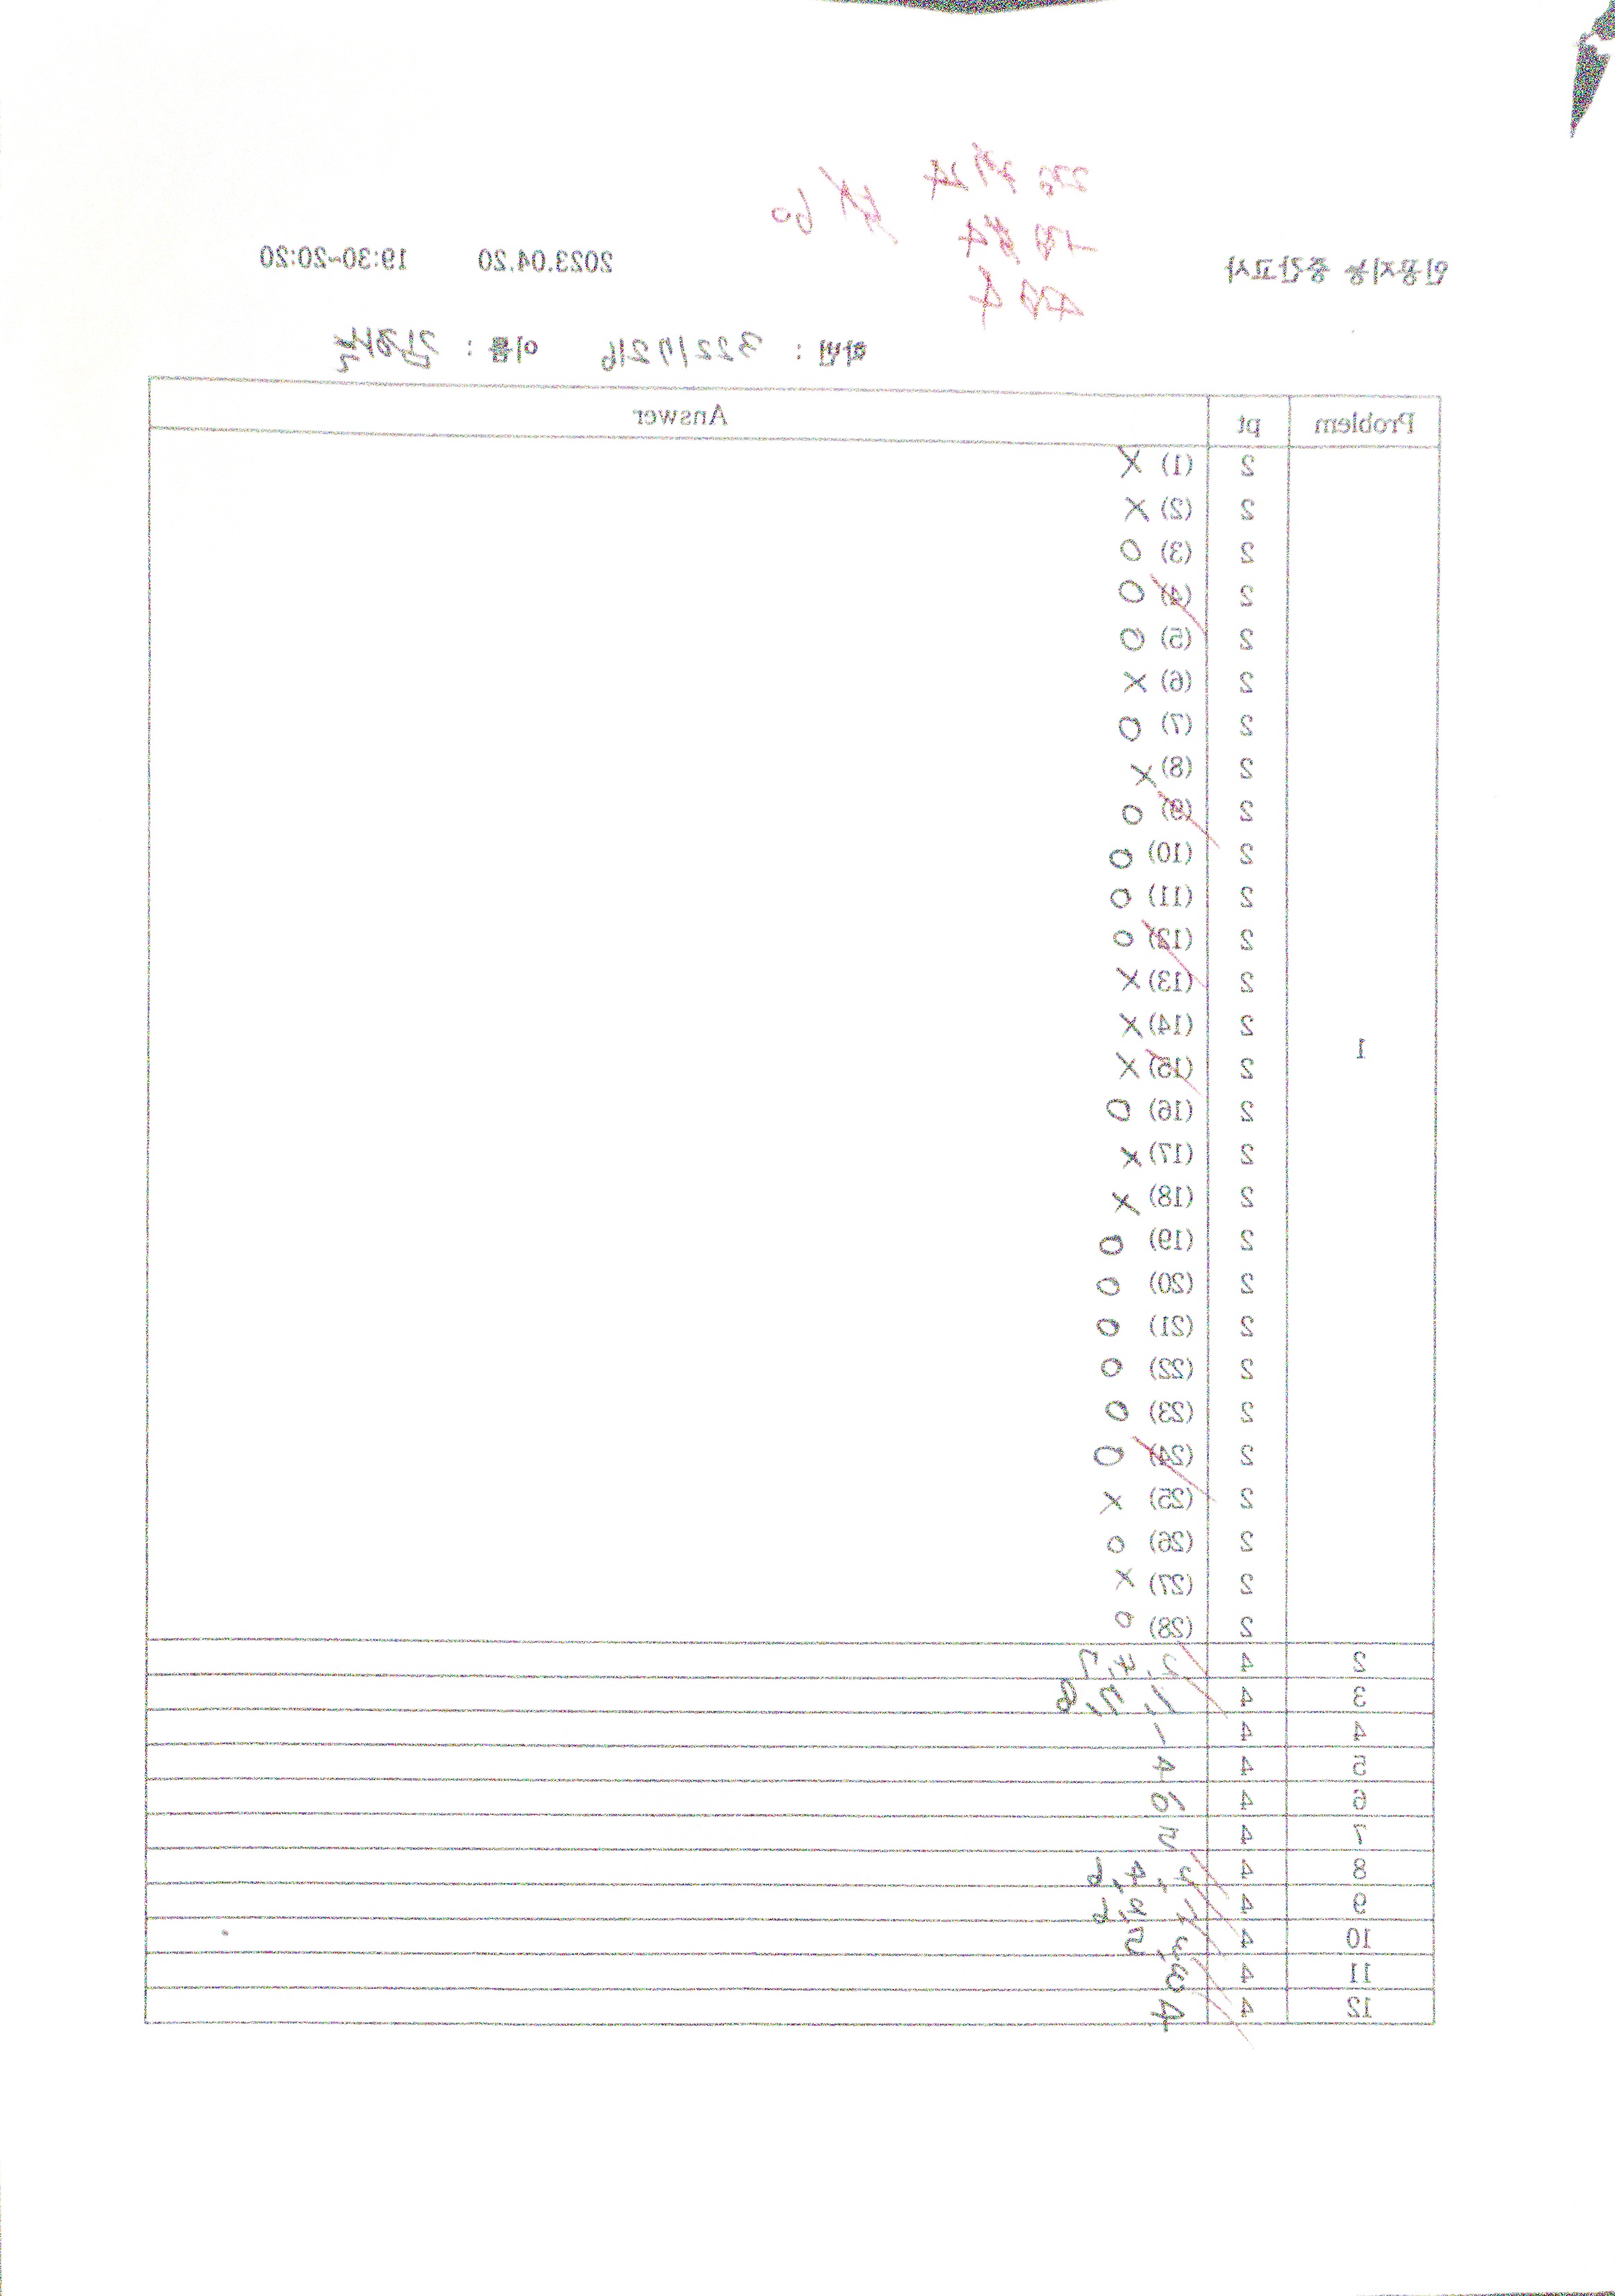 인공지능 중간고사 2023.04.20 19:30~20:20
학번 : 32217216 이름 :
Problem pt Answer
1
2 (1) X
2 (2) X
2 (3) O
2 (4) O
2 (5) O
2 (6) X
2 (7) O
2 (8) X
2 (9) O
2 (10) O
2 (11) O
2 (12) O
2 (13) X
2 (14) X
2 (15) X
2 (16) O
2 (17) X
2 (18) X
2 (19) O
2 (20) O
2 (21) O
2 (22) O
2 (23) O
2 (24) O
2 (25) X
2 (26) O
2 (27) X
2 (28) O
2 4 2, 4, 7
3 4 1, 7, 8
4 4 1
5 4 4
6 4 6
7 4
8 4 2, 4, 6
9 4 2, 6
10 4 3, 5
11 4 3
12 4 4